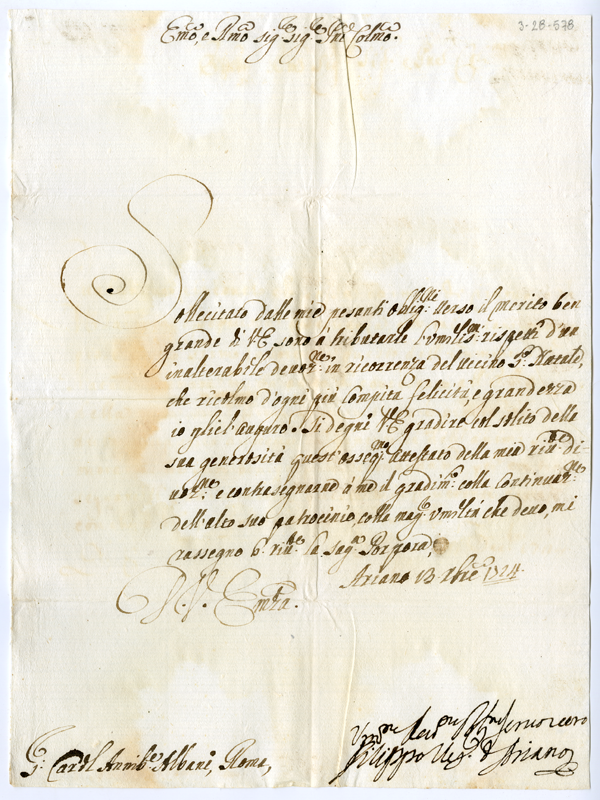 3-28-578
Em̃o, e Rm̃o Sig.re Sig.re Pne Colmo.
Sollecitato dalle mie pesanti obblig.ni verso il merito ben
grande di V.E., sono à tributarle l'umiliss.mi rispetti d'una
inalterabile devoz.ne in ricorrenza del vicino S.o Natale,
che ricolmo d'ogni più compita felicità, e grandezza
io gliel'auguro. Si degni V.E. gradire col solito della
sua generosità quest'osseq.mo attestato della mia riv.te di-
voz.ne, e contrasegnarne à me il gradim.to colla continuaz.ne
dell'alto suo patrocinio, colla mag.r umiltà che devo, mi
rassegno b. la sag.a Porpora,
Ariano 13. Xbre 1724.
Di V. Emza.
S.r Cardl Annib.e Albani, Roma,
Filippo Vesc.o d'Ariano